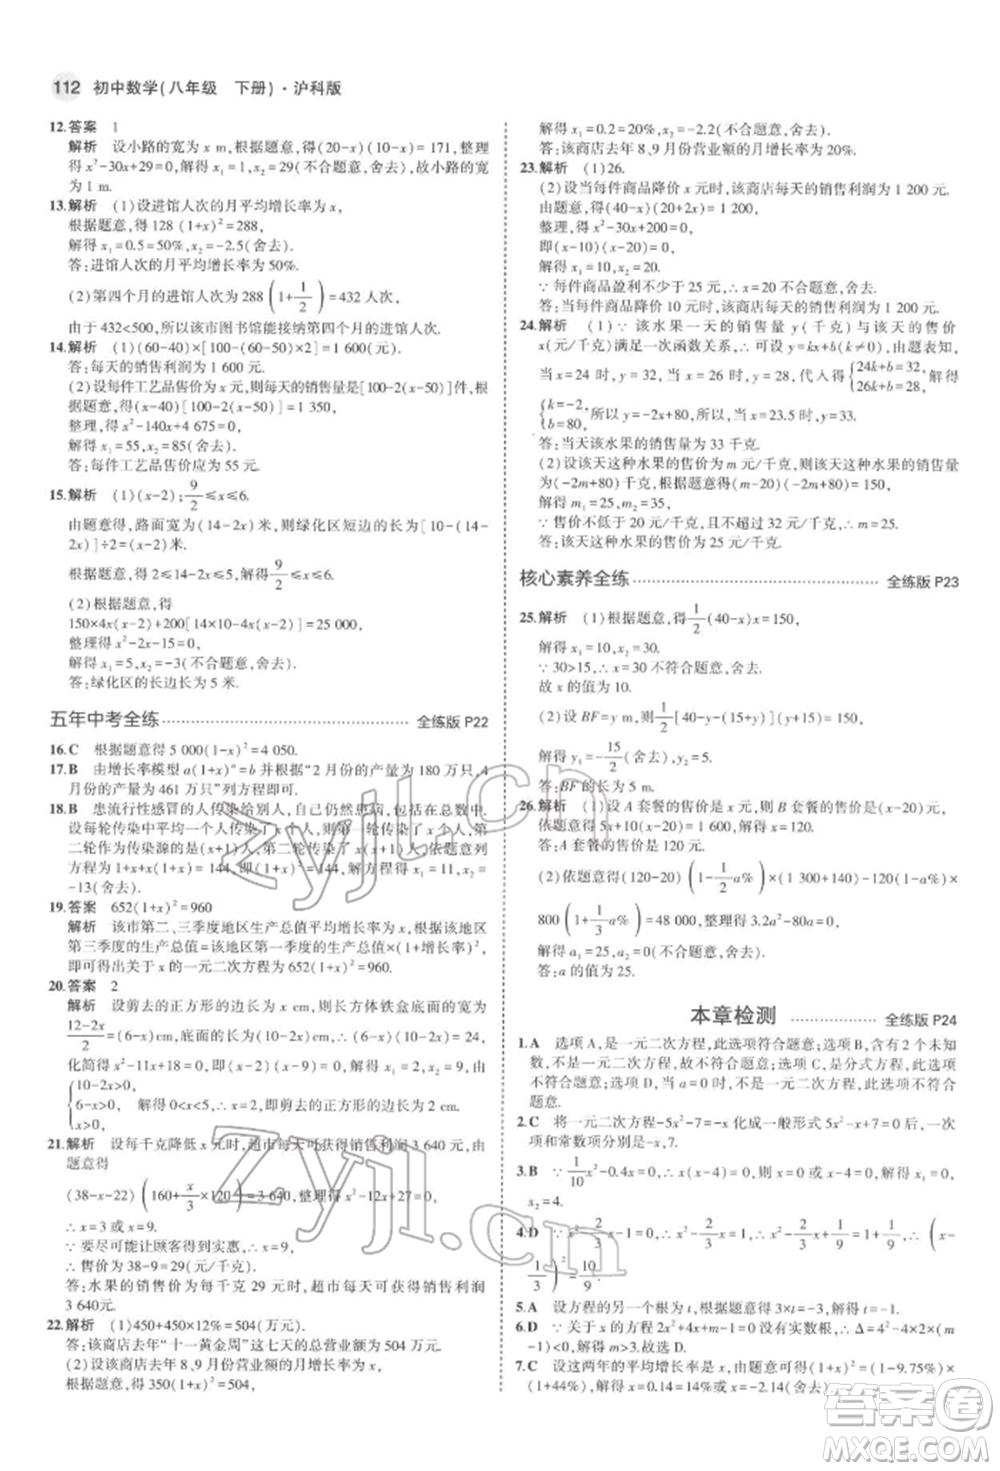 112 初中数学(八年级 下册)·沪科版
12.答案 1
解析 设小路的宽为 x m,根据题意,得(20-x)(10-x)=171,整理,得 x²-30x+29=0,解得 x₁=1,x₂=29(不合题意,舍去),故小路的宽
为 1 m.
13.解析 (1)设进馆人次的月平均增长率为 x,
根据题意,得 128 (1+x)²=288,
解得 x₁=0.5=50%,x₂=-2.5(舍去).
答:进馆人次的月平均增长率为 50%.
(2)第四个月的进馆人次为 288(1+1/2)=432 人次,
由于 432<500,所以该市图书馆能接纳第四个月的进馆人次.
14.解析 (1)(60-40)×[100-2(60-50)]=1 600(元).
答:每天的销售利润为 1 600 元.
(2)设每件工艺品售价为 x 元,则每天的销售量是[100-2(x-50)]件,根
据题意,得(x-40)[100-2(x-50)]=1 350,
整理,得 x²-140x+4 675=0,
解得 x₁=55,x₂=85(舍去).
答:每件工艺品售价应为 55 元.
15.解析 (1)(x-2);9/2≤x≤6.
由题意得,路面宽为(14-2x)米,则绿化区短边的长为[10-(14-
2x)]÷2=(x-2)米.
根据题意,得 2≤14-2x≤5,解得9/2≤x≤6.
(2)根据题意,得
150×4x(x-2)+200[14×10-4x(x-2)]=25 000,
整理得 x²-2x-15=0,
解得 x₁=5,x₂=-3(不合题意,舍去).
答:绿化区的长为 5 米.
五年中考全练 全练版 P22
16.C 根据题意得 5 000(1-x)²=4 050.
17.B 由增长率模型 a(1+x)ⁿ=b 并根据“2 月份的产量为 180 万只,4
月份的产量为 461 万只”列方程即可.
18.B 患流行性感冒的人传染给别人,自己仍然患病,包括在总数中.
设每轮传染中平均一个人传染了 x 个人,则第一轮传染了 x 个人,第
二轮作为传染源的是(x+1)人,第二轮传染 x(x+1)人,依题意列
方程为 1+x+x(1+x)=144,即(1+x)²=144,解方程得 x₁=11,x₂=
-13(舍去).
19.答案 652(1+x)²=960
解析 该市第二、三季度地区生产总值平均增长率为 x,则该地区
第三季度的生产总值=该地区第一季度的生产总值×(1+增长率)²,
即可得出关于 x 的一元二次方程为 652(1+x)²=960.
20.答案 2
解析 设剪去的正方形的边长为 x cm,则长方体铁盒底面的宽度为
(12-2x)/2=(6-x)cm,底面的长为(10-2x)cm,∴(10-2x)(6-x)=24,
化简得 x²-11x+18=0,∴(x-2)(x-9)=0,∴ x₁=2,x₂=9.∵{10-2x>0,
6-x>0, 解得 0<x<5,∴ x=2,即剪去的正方形的边长为 2 cm.
x>0,
21.解析 设每千克降低 x 元时,超市每天可获得销售利润 3 640 元,由
题意得
(38-x-22)(160+x/3×120)=3 640,整理得 x²-12x+27=0,
∴ x=3 或 x=9.
∵ 要尽可能让顾客得到实惠,∴ x=9,
∴ 售价为 38-9=29(元/千克).
答:水果的销售价为每千克 29 元时,超市每天可获得销售利润
3 640元.
22.解析 (1)450+450×12%=504(万元).
答:该商店去年“十一黄金周”这七天的总营业额为 504 万元.
(2)设该商店去年 8、9 月份营业额的月增长率为 x,
依题意,得 350(1+x)²=504,
解得 x₁=0.2=20%,x₂=-2.2(不合题意,舍去).
答:该商店去年 8、9 月份营业额的月增长率为 20%.
23.解析 (1)26.
(2)设当每件商品降价 x 元时,该商店每天的销售利润为 1 200 元,
由题意,得(40-x)(20+2x)=1 200,
整理,得 x²-30x+200=0,
即(x-10)(x-20)=0,
解得 x₁=10,x₂=20,
∵ 每件商品盈利不少于 25 元,∴ x=20 应舍去,∴ x=10.
答:当每件商品降价 10 元时,该商店每天的销售利润为 1 200 元.
24.解析 (1)∵ 该水果一天的销售量 y(千克)与该天的售价
x(元/千克)满足一次函数关系,∴ 可设 y=kx+b(k≠0),由题表知,
当 x=24 时,y=32,当 x=26 时,y=28,代入得{24k+b=32,
26k+b=28, 解得
{k=-2,
b=80, 所以 y=-2x+80,当 x=23.5 时,y=33.
答:当天该水果的销售量为 33 千克.
(2)设该天这种水果的售价为 m 元/千克,根据题意得(m-20)·
(-2m+80)=150,
解得 m₁=25,m₂=35,
∵ 售价不低于 20 元/千克,且不超过 32 元/千克,∴ m=25.
答:该天这种水果的售价为 25 元/千克.
核心素养全练 全练版 P23
25.解析 (1)根据题意,得1/2(40-x)x=150,
解得 x₁=10,x₂=30,
∵ 30>15,∴ x=30 不符合题意,舍去.
故 x 的值为 10.
(2)设 BF=y m,则1/2[40-y-(15-y)+15]y=150,
解得 y=-15/2(舍去)
答:BF 的长为 5 m.
26.解析 (1)设 A 套餐的售价是 x 元,则 B 套餐的售价是(x-20)元,
依题意得 5x+10(x-20)=1 600,解得 x=120.
答:A 套餐的售价是 120 元.
(2)依题意得(120-20)(1-1/2a%)×(1 300+140)-(120-20)×
800(1+1/3a%)=48 000,整理得 3.2a²-80a=0,
解得 a₁=25,a₂=0(舍去).
答:a 的值为 25.
本章检测 全练版 P24
1.A 选项 A,是一元二次方程,故此选项符合题意;选项 B,含有 2 个未知
数,不是一元二次方程,故不符合题意;选项 C,是分式方程,故此选
项不符合题意;选项 D,当 a=0 时,不是一元二次方程,故不符合
题意.
2.C 将一元二次方程-5x²-7=-x 化成一般形式 5x²-x+7=0 后,一次
项和常数项分别是-x,7.
3.B ∵ 1/10x²-0.4x=0,∴ x²-4x=0,∴ x(x-4)=0,则 x=0 或 x-4=0,解得 x₁=0,
x₂=4.
5.A 设方程的另一个根为 t,根据根与系数的关系得 3×t=-3,解得 t=-1.
7.C 设这两年的平均增长率为 x,由题意可得(1+x)²=(1-9.75%)×
(1+44%),解得 x₁=0.14=14%,x₂=-2.14(舍去).
zyjl.cn
Zyjl.cn
答案圈
MXQE.COM